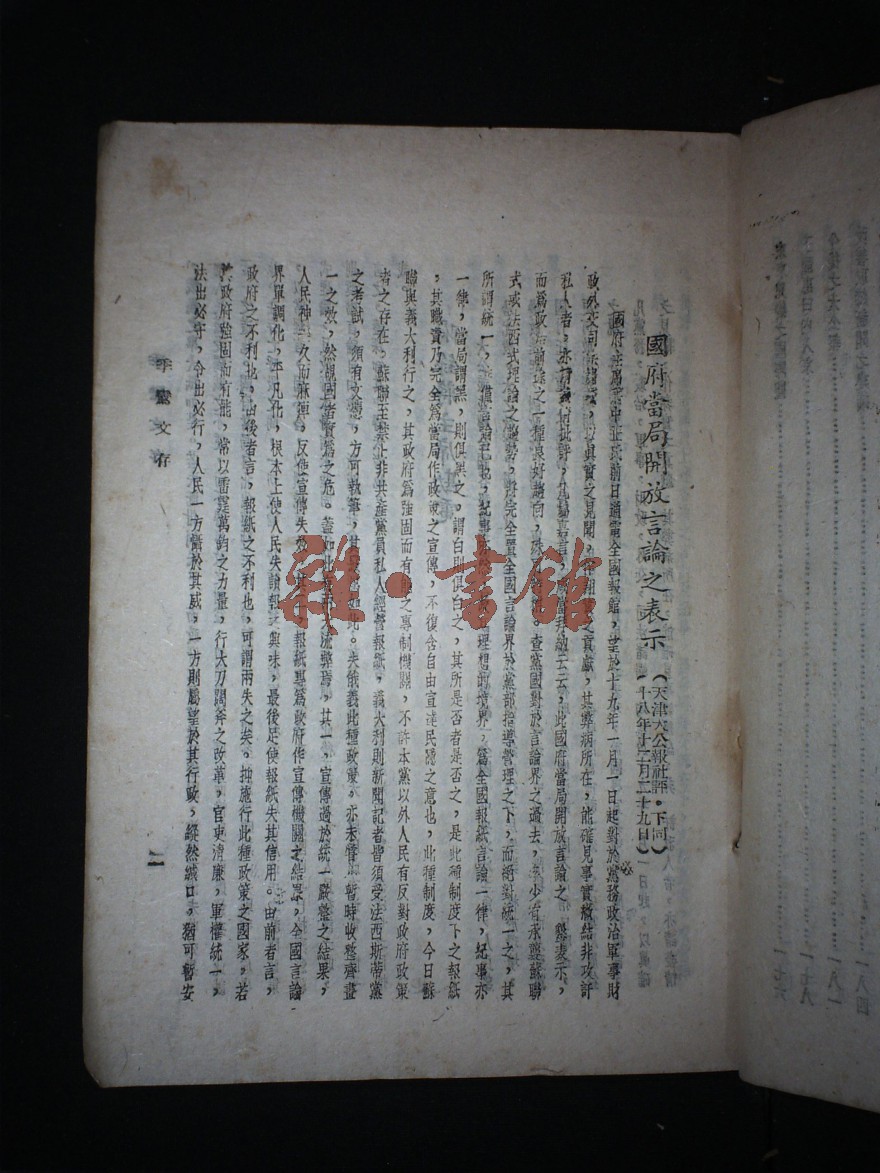 國府當局開放言論之表示
(天津大公報社評。下同)
(十八年十二月二十九日)
國府主席蔣中正氏前日通電全國報館,望於十九年一月一日起對於黨務政治軍事財
政外交司法諸端,以真實之見聞,作翔實之貢獻,其弊病所在,能確見事實癥結非攻訐
私人者,亦請盡情批評,凡屬嘉言,咸當拜納云云,此國府當局開放言論之表示,
而為政治前途之一種良好趨向,查黨國對於言論界之過去,至少有承襲蘇聯
式或法西式理論之趨勢,將完全置全國言論界於黨部指導管理之下,而絕對統一之,其
所謂統一,不僅言論已也,紀事亦然,理想的境界,為全國報紙言論一律,紀事亦
一律,當局謂黑,則俱黑之,謂白則俱白之,其所是否者是否之,是此種制度下之報紙
,其職責乃完全為當局作政策之宣傳,不復含自由宣達民隱之意也,此種制度,今日蘇
聯與義大利行之,其政府為強固而有力之專制機關,不許本黨以外人民有反對政府政策
者之存在,蘇聯至禁止非共產黨員私人經營報紙,義大利則新聞記者皆須受法西斯蒂黨
之考試,領有文憑,方可執筆,其嚴也如此。夫俄義此種政策,亦未嘗無暫時收整齊畫
一之效,然覘國者實為之危。蓋如此有兩大流弊焉,其一,宣傳過於統一嚴整之結果,
人民神經久而麻痺,反使宣傳失效,其二,報紙專為政府作宣傳機關之結果,全國言論
界單調化,平凡化,根本上使人民失讀報之興味,最後足使報紙失其信用。由前者言,
政府之不利也,由後者言,報紙之不利也,可謂兩失之矣。抑施行此種政策之國家,若
其政府強固而有能,常以雷霆萬鈞之力量,行大刀闊斧之改革,官吏清廉,軍權統一,
法出必守,令出必行,人民一方懾於其威,一方則屬望於其行政,縱然緘口,猶可暫安
季鸞文存
一
雜·書館
一八四
一八一
一七八
一七六